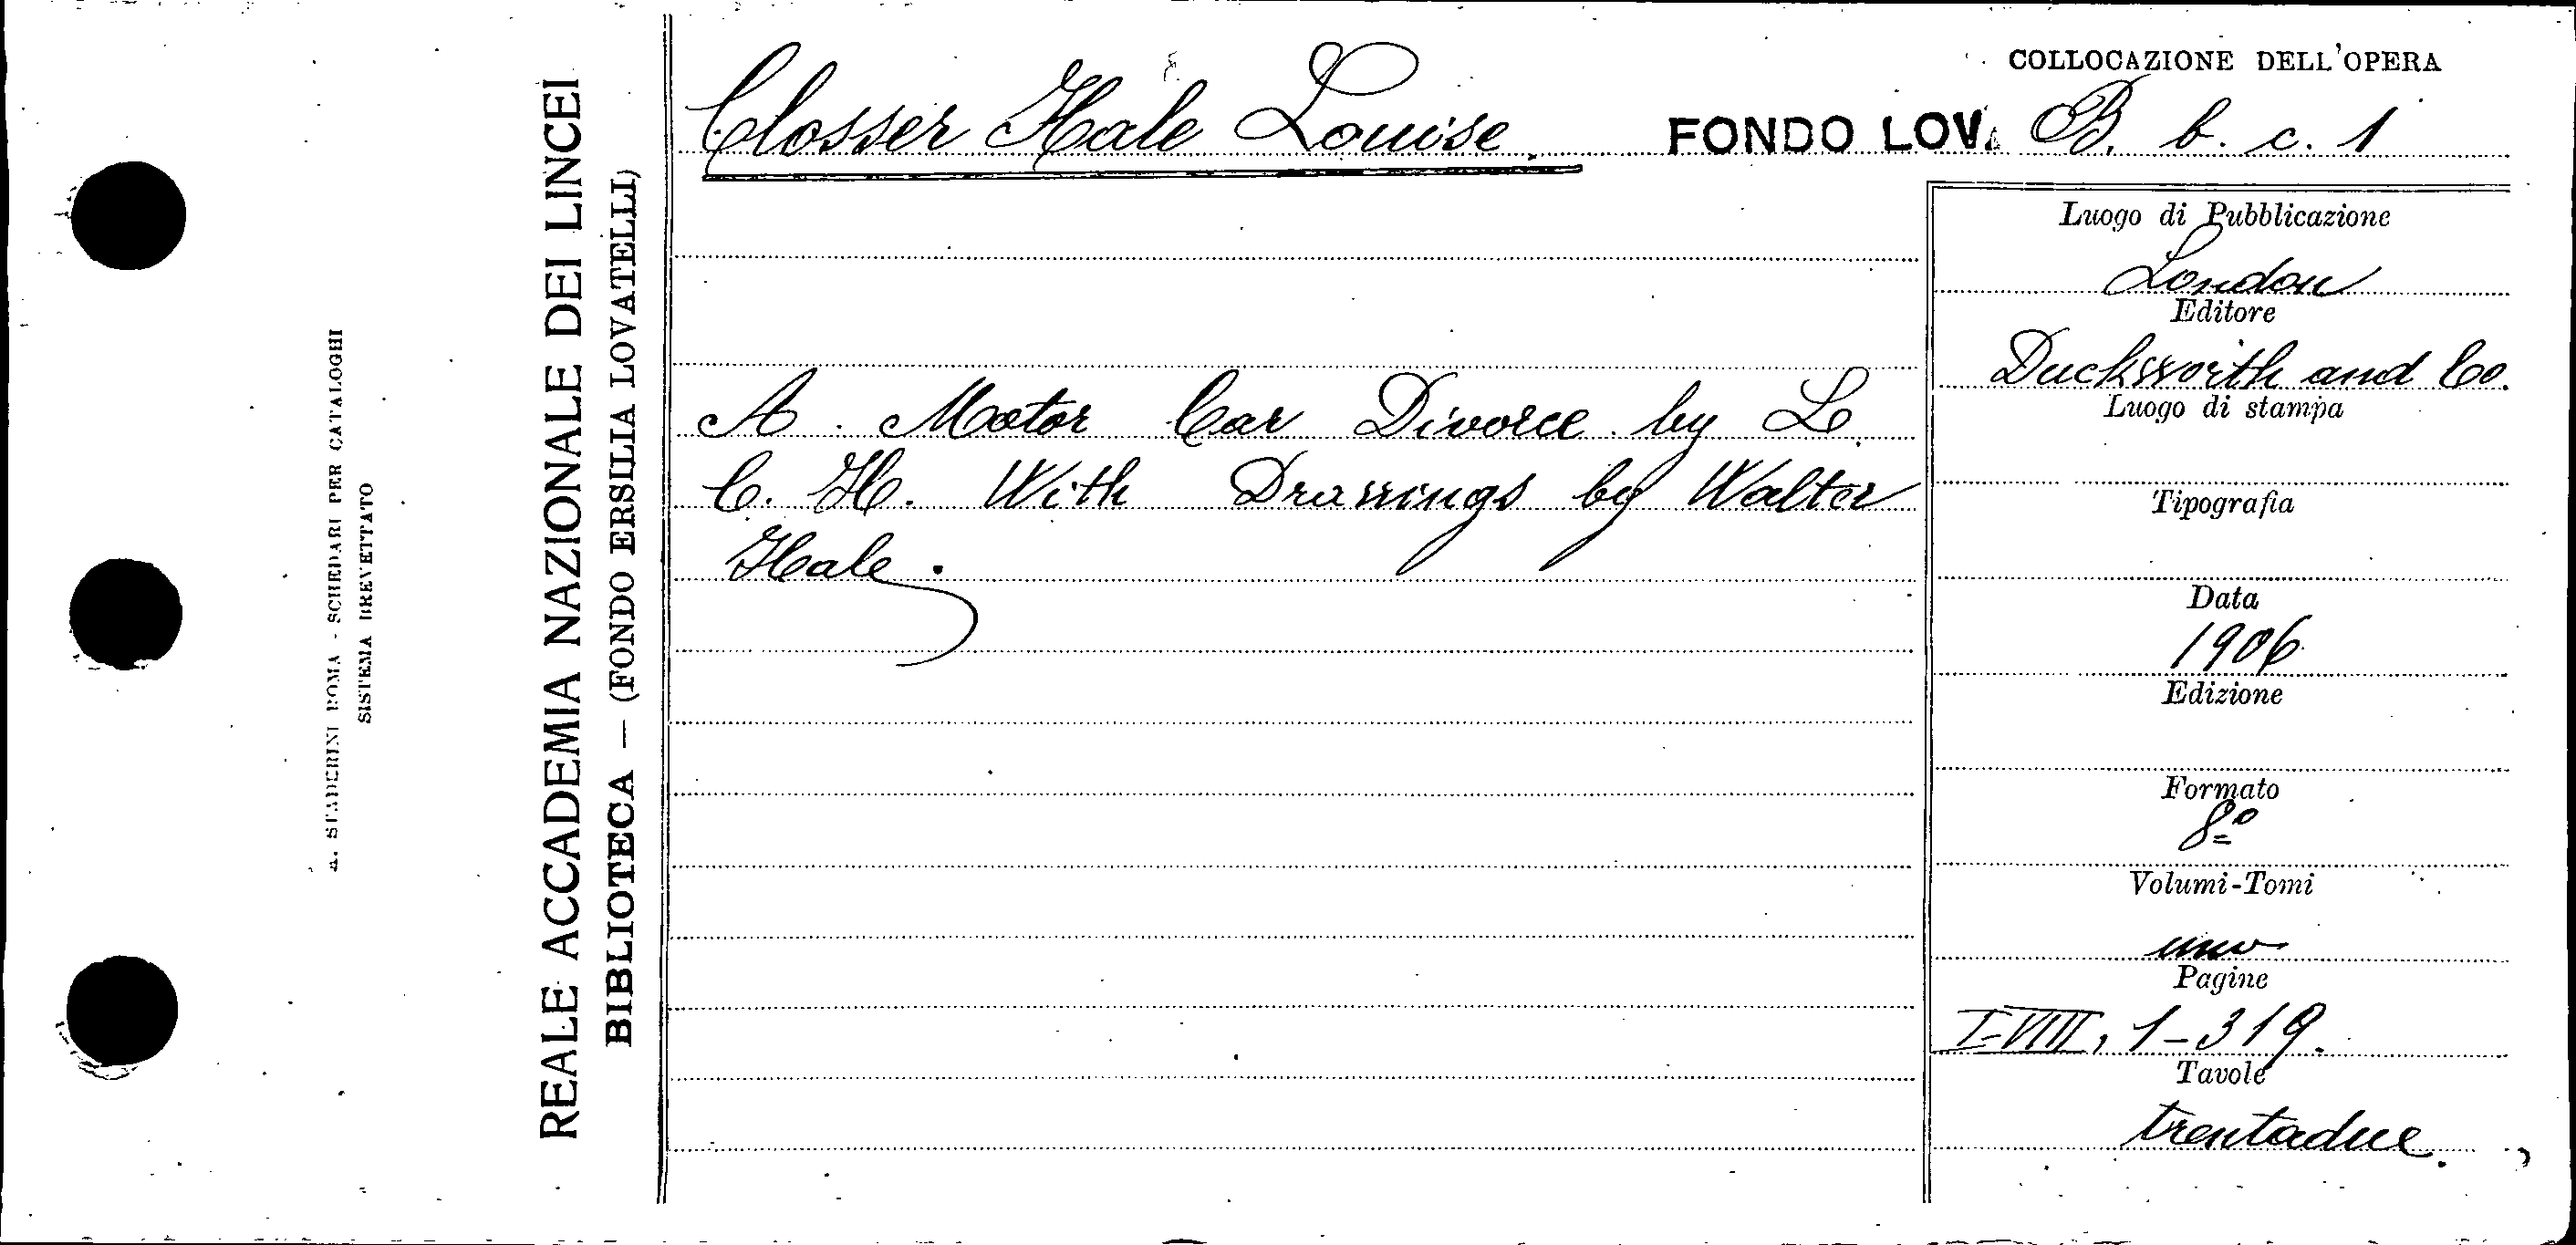 COLLOCAZIONE DELL'OPERA
Closser Hale Louise. FONDO LOV. B. b. c. 1
A Motor Car Divorce by L.
C. H. With Drawings by Walter
Hale.
Luogo di Pubblicazione
London
Editore
Duckworth and Co.
Luogo di stampa
Tipografia
Data
1906
Edizione
Formato
8º
Volumi-Tomi
uno
Pagine
I-VIII, 1-319.
Tavole
trentadue.
REALE ACCADEMIA NAZIONALE DEI LINCEI
BIBLIOTECA — (FONDO ERSILIA LOVATELLI)
STADERINI ROMA - SCHEDARI PER CATALOGHI
SISTEMA BREVETTATO